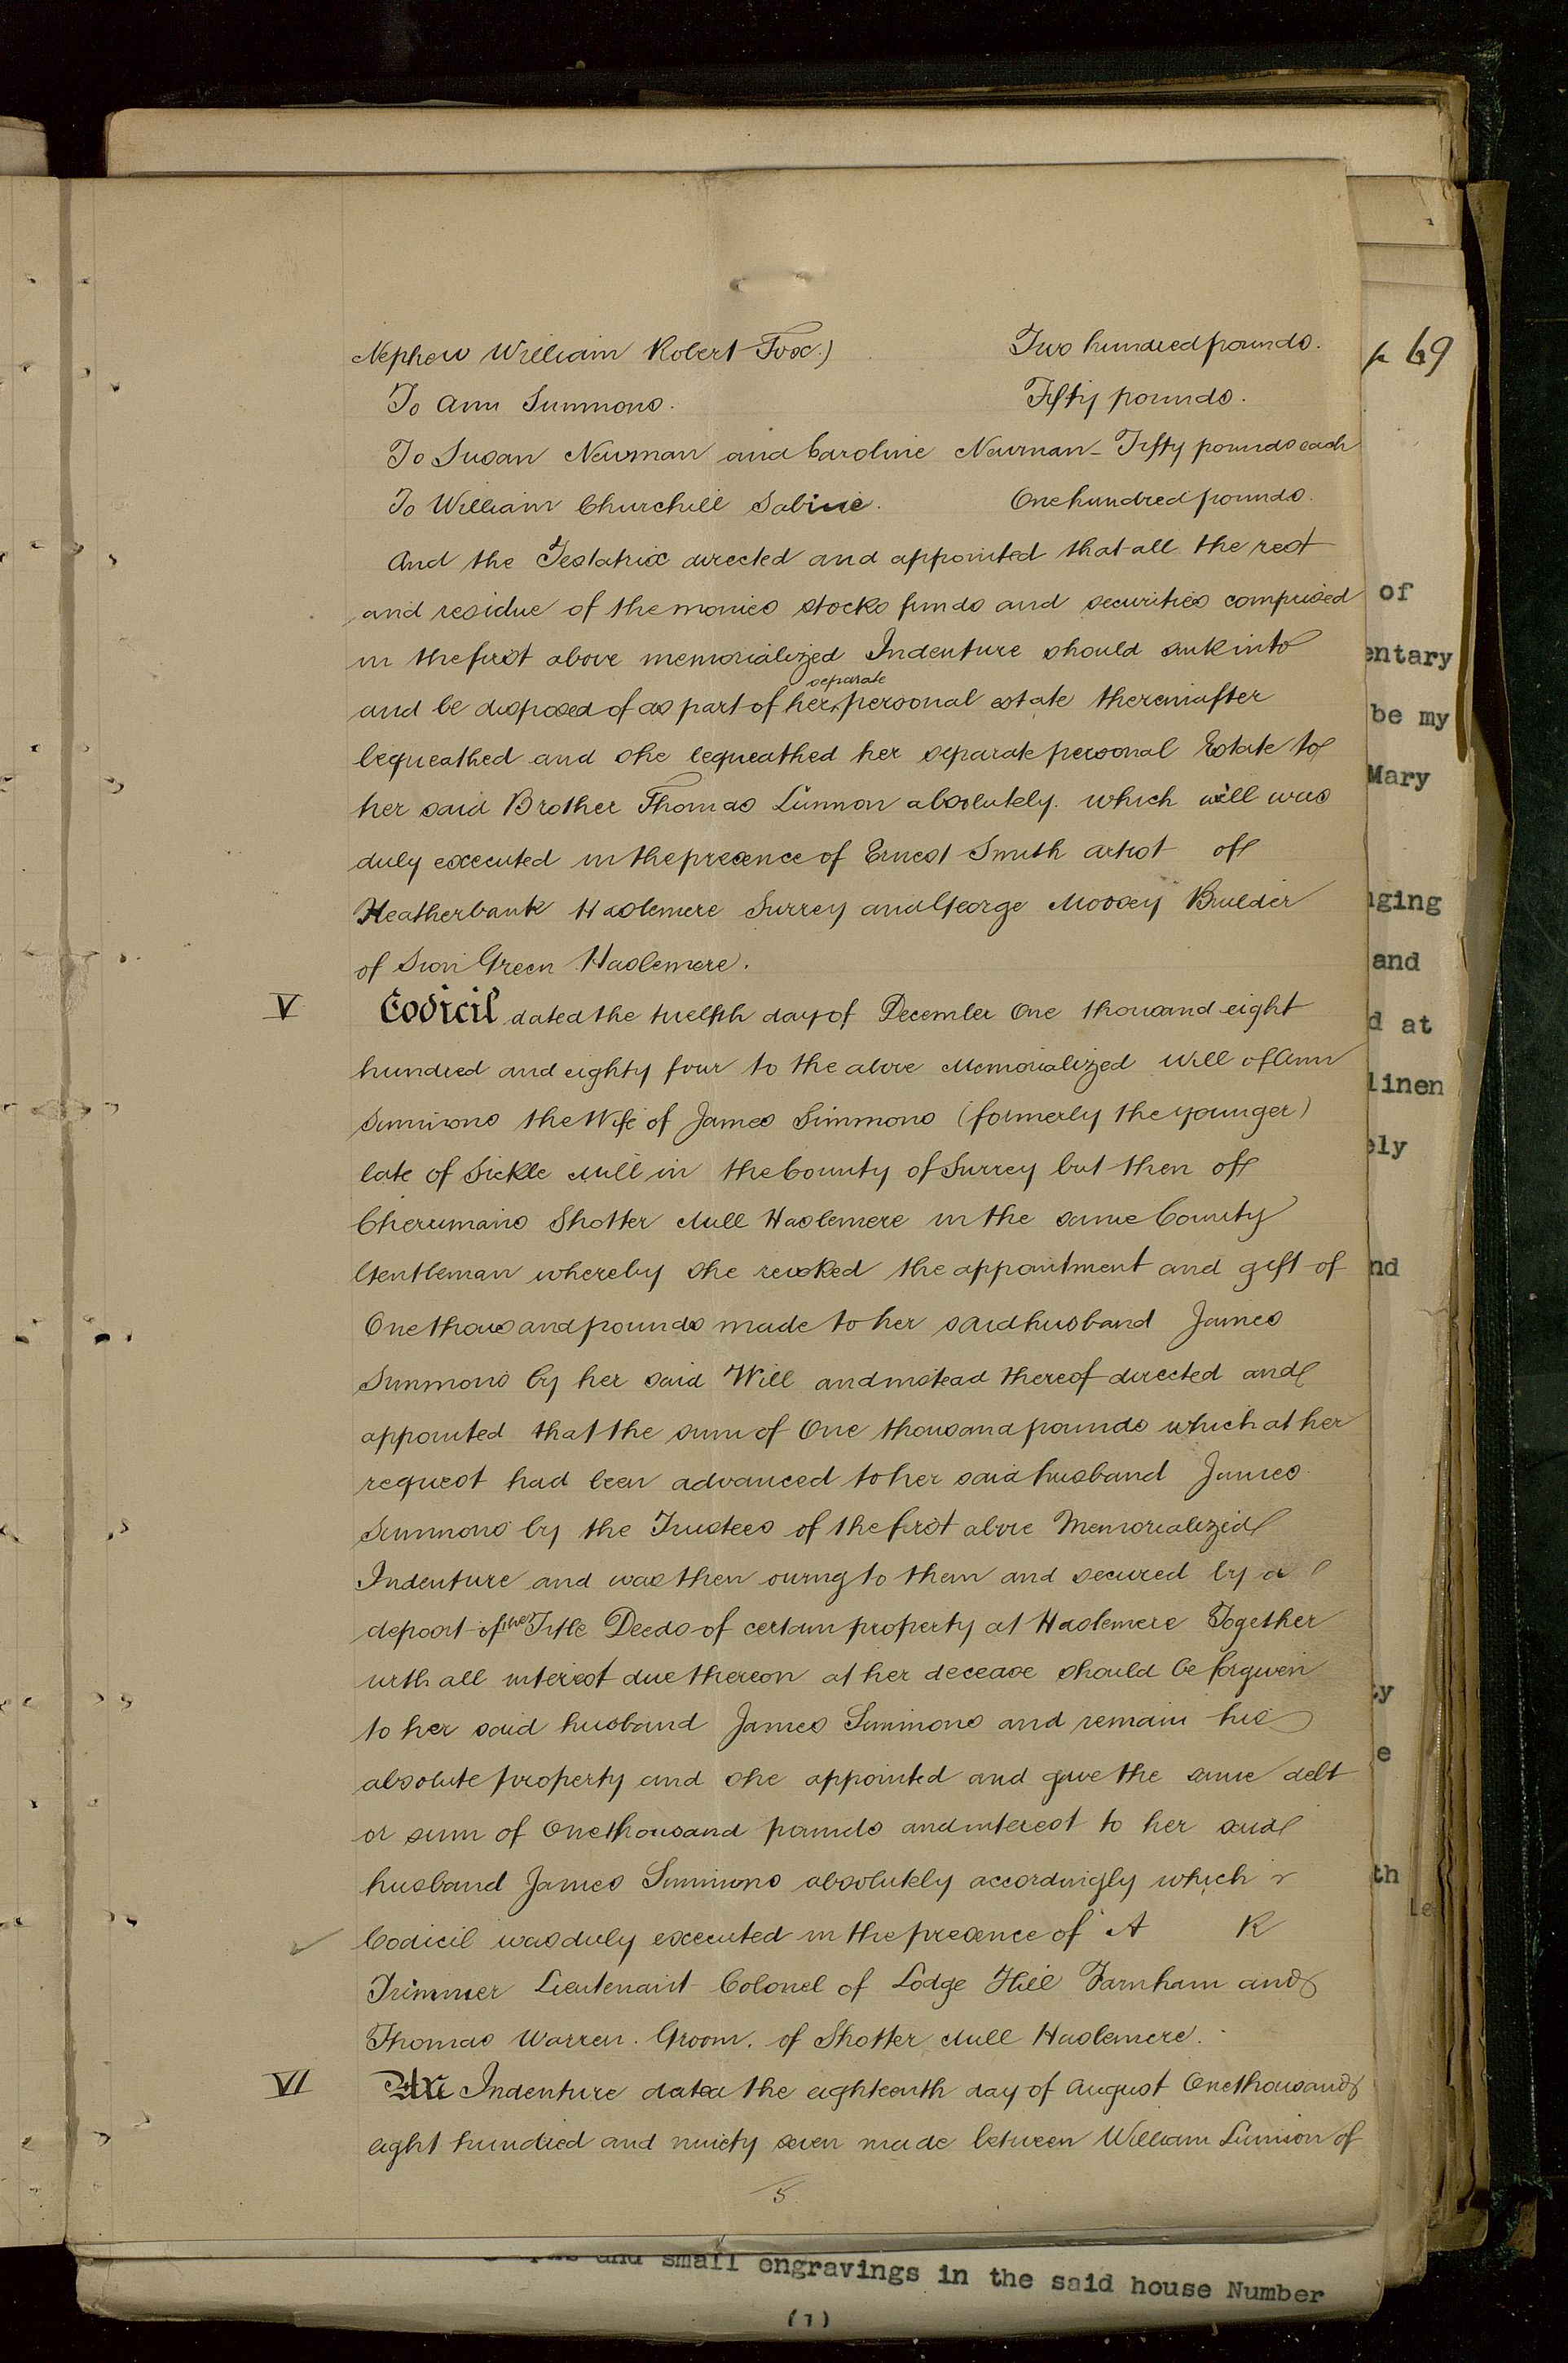 Nephew William Robert Fox.) Two hundred pounds.
To Ann Simmons. Fifty pounds.
To Susan Newman and Caroline Newman - Fifty pounds each
To William Churchill Sabine. One hundred pounds.
And the Testatrix directed and appointed that all the rest
and residue of the monies stocks funds and securities comprised
in the first above memorialized Indenture should sink into
separate
and be disposed of as part of her personal estate thereinafter
bequeathed and she bequeathed her separate personal Estate to
her said Brother Thomas Linnon absolutely. which will was
duly executed in the presence of Ernest Smith artist of
Heatherbank Haslemere Surrey and George Moosey Builder
of Sion Green Haslemere.
V Codicil dated the twelfth day of December One thousand eight
hundred and eighty four to the above Memorialized Will of Ann
Simmons the Wife of James Simmons (formerly the younger)
late of Sickle Mill in the County of Surrey but then of
Cherrimans Shotter Mill Haslemere in the same County
Gentleman whereby she revoked the appointment and gift of
One thousand pounds made to her said husband James
Simmons by her said Will and instead thereof directed and
appointed that the sum of One thousand pounds which at her
request had been advanced to her said husband James
Simmons by the Trustees of the first above Memorialized
Indenture and was then owing to them and secured by a
deposit of the Title Deeds of certain property at Haslemere Together
with all interest due thereon at her decease should be forgiven
to her said husband James Simmons and remain his
absolute property and she appointed and gave the same debt
or sum of One thousand pounds and interest to her said
husband James Simmons absolutely accordingly which
Codicil was duly executed in the presence of A R
Trimmer Lieutenant Colonel of Lodge Hill Farnham and
Thomas Warren. Groom. of Shotter Mill Haslemere.
VI Indenture dated the eighteenth day of August One thousand
eight hundred and ninety seven made between William Linnon of
5
69
of
entary
be my
Mary
nging
and
d at
linen
ely
nd
ty
e
th
Le
and small engravings in the said house Number
(1)